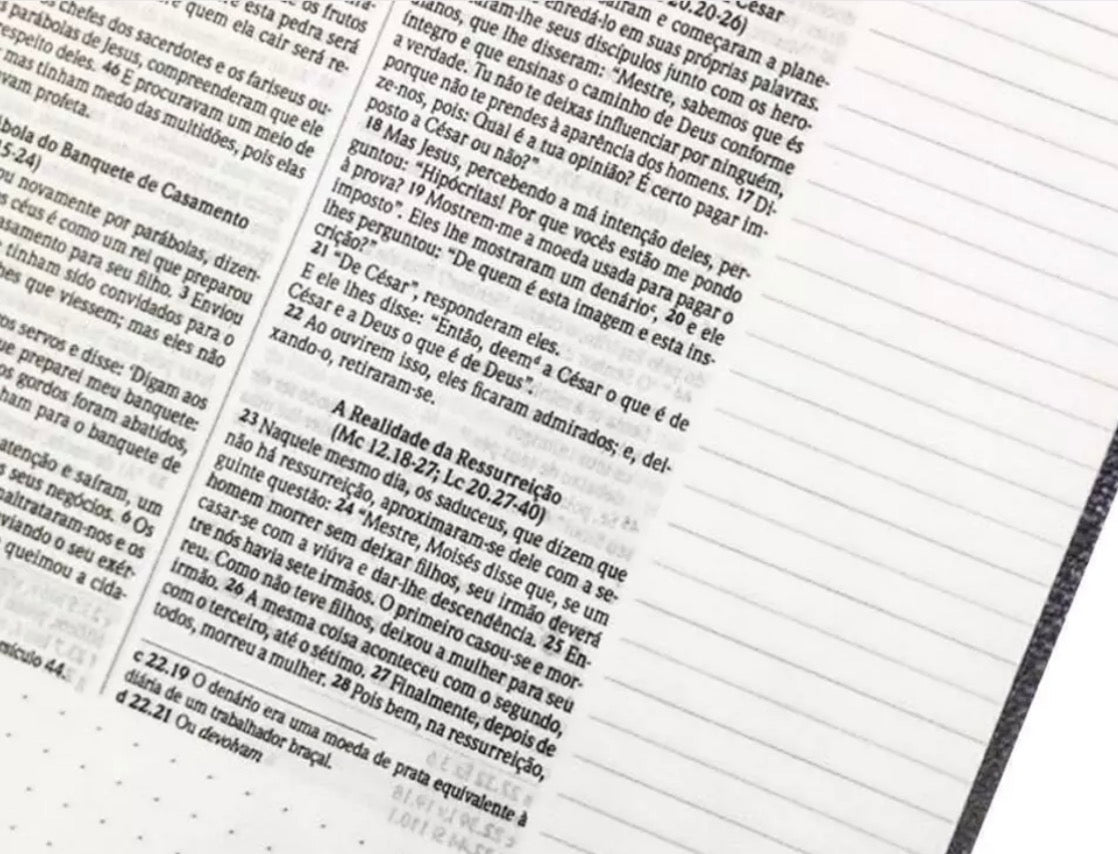 os frutos
esta pedra será
quem ela cair será re-
chefes dos sacerdotes e os fariseus ou-
parábolas de Jesus, compreenderam que ele
respeito deles. 46 E procuravam um meio de
mas tinham medo das multidões, pois elas
profeta.
do Banquete de Casamento
15-24)
novamente por parábolas, dizen-
céus é como um rei que preparou
samento para seu filho. 3 Enviou
tinham sido convidados para o
que viessem; mas eles não
servos e disse: ‘Digam aos
preparei meu banquete:
gordos foram abatidos,
ham para o banquete de
atenção e saíram, um
seus negócios. 6 Os
maltrataram-nos e os
viando o seu exér-
queimou a cida-
rsículo 44.
César
20.20-26)
íram e começaram a plane-
enredá-lo em suas próprias palavras.
ram-lhe seus discípulos junto com os hero-
dianos, que lhe disseram: “Mestre, sabemos que és
íntegro e que ensinas o caminho de Deus conforme
a verdade. Tu não te deixas influenciar por ninguém,
porque não te prendes à aparência dos homens. 17 Di-
ze-nos, pois: Qual é a tua opinião? É certo pagar im-
posto a César ou não?”
18 Mas Jesus, percebendo a má intenção deles, per-
guntou: “Hipócritas! Por que vocês estão me pondo
à prova? 19 Mostrem-me a moeda usada para pagar o
imposto”. Eles lhe mostraram um denárioᶜ, 20 e ele
lhes perguntou: “De quem é esta imagem e esta ins-
crição?”
21 “De César”, responderam eles.
E ele lhes disse: “Então, deemᵈ a César o que é de
César e a Deus o que é de Deus”.
22 Ao ouvirem isso, eles ficaram admirados; e, dei-
xando-o, retiraram-se.
A Realidade da Ressurreição
(Mc 12.18-27; Lc 20.27-40)
23 Naquele mesmo dia, os saduceus, que dizem que
não há ressurreição, aproximaram-se dele com a se-
guinte questão: 24 “Mestre, Moisés disse que, se um
homem morrer sem deixar filhos, seu irmão deverá
casar-se com a viúva e dar-lhe descendência. 25 En-
tre nós havia sete irmãos. O primeiro casou-se e mor-
reu. Como não teve filhos, deixou a mulher para seu
irmão. 26 A mesma coisa aconteceu com o segundo,
com o terceiro, até o sétimo. 27 Finalmente, depois de
todos, morreu a mulher. 28 Pois bem, na ressurreição,
c 22.19 O denário era uma moeda de prata equivalente à
diária de um trabalhador braçal.
d 22.21 Ou devolvam